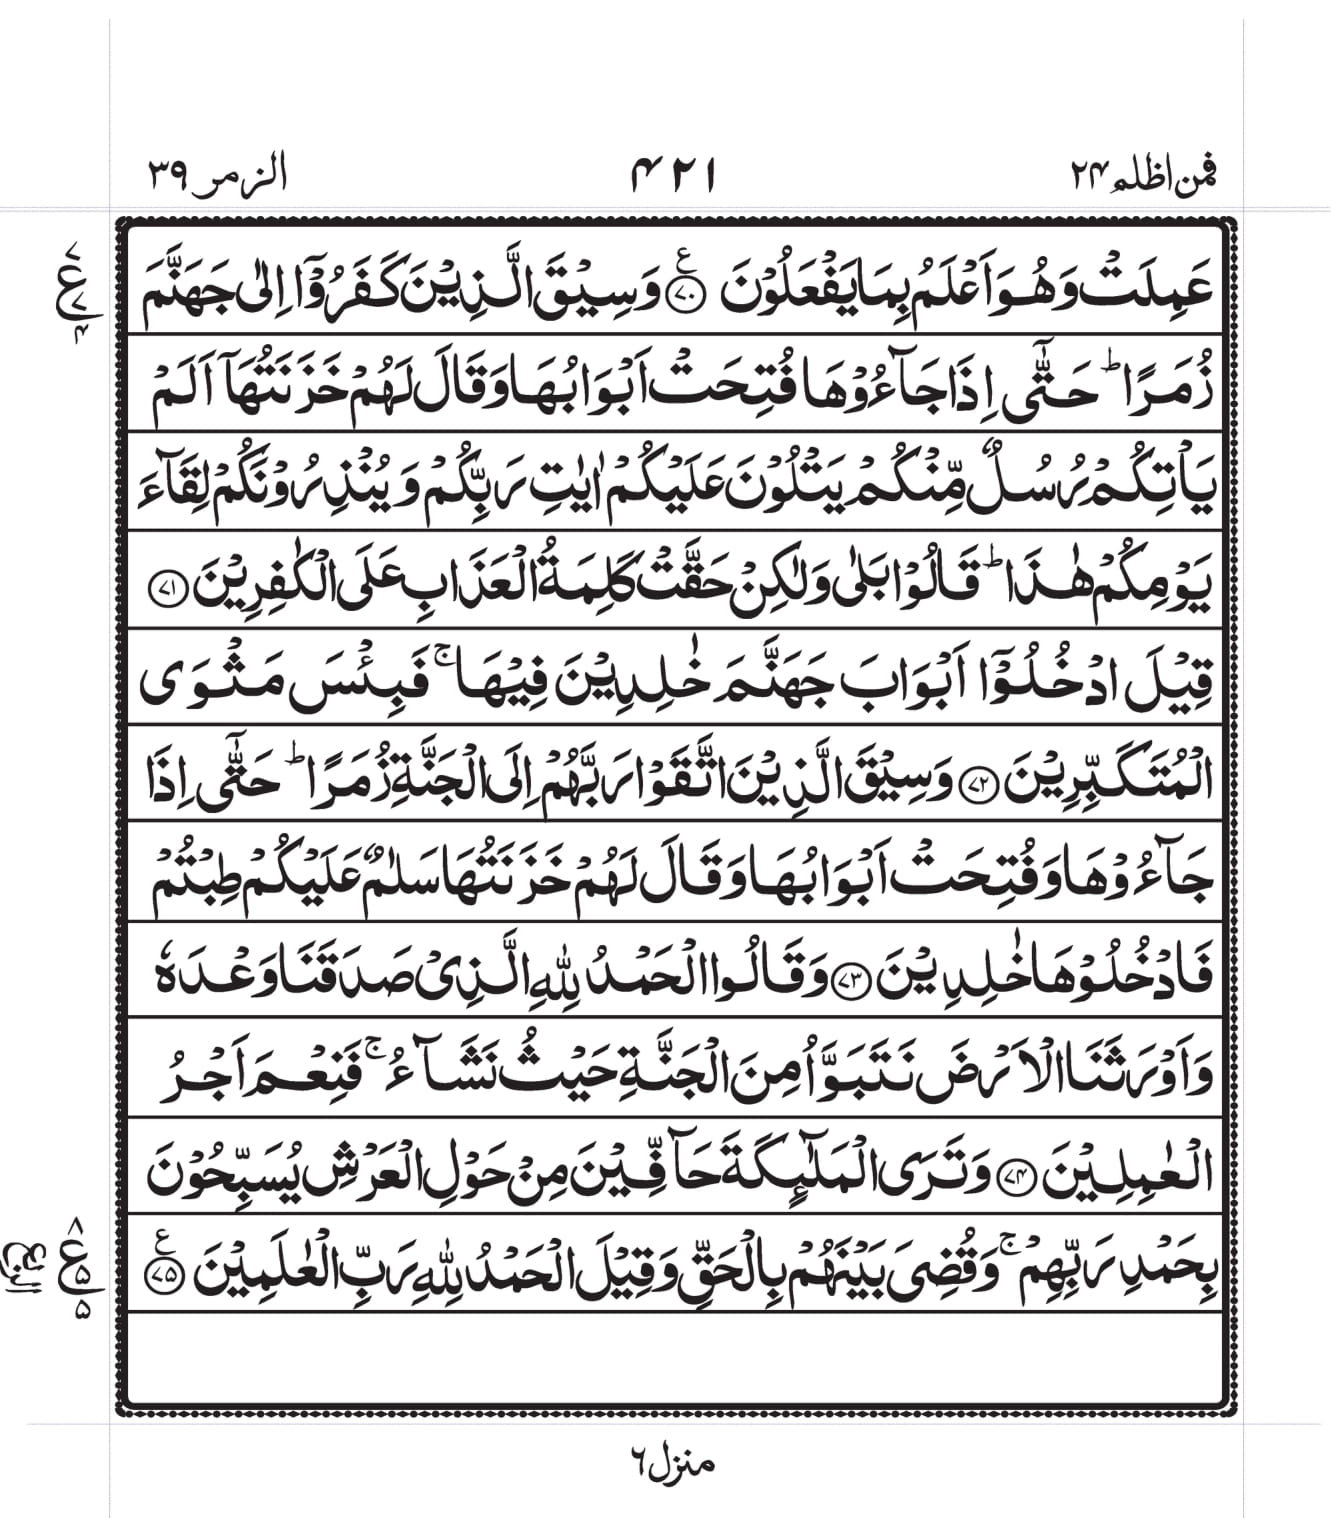 فمن اظلم ۲۴ ۴۲۱ الزمر ۳۹
عَمِلَتْ وَهُوَ اَعْلَمُ بِمَا يَفْعَلُوْنَ ۷۰ ع وَسِيْقَ الَّذِيْنَ كَفَرُوْٓا اِلٰى جَهَنَّمَ
۸ ع ۷ ۴
زُمَرًا ؕ حَتّٰٓى اِذَا جَآءُوْهَا فُتِحَتْ اَبْوَابُهَا وَقَالَ لَهُمْ خَزَنَتُهَآ اَلَمْ
يَاْتِكُمْ رُسُلٌ مِّنْكُمْ يَتْلُوْنَ عَلَيْكُمْ اٰيٰتِ رَبِّكُمْ وَ يُنْذِرُوْنَكُمْ لِقَآءَ
يَوْمِكُمْ هٰذَا ؕ قَالُوْا بَلٰى وَلٰكِنْ حَقَّتْ كَلِمَةُ الْعَذَابِ عَلَى الْكٰفِرِيْنَ ۷۱
قِيْلَ ادْخُلُوْٓا اَبْوَابَ جَهَنَّمَ خٰلِدِيْنَ فِيْهَا ۚ فَبِئْسَ مَثْوَى
الْمُتَكَبِّرِيْنَ ۷۲ وَسِيْقَ الَّذِيْنَ اتَّقَوْا رَبَّهُمْ اِلَى الْجَنَّةِ زُمَرًا ؕ حَتّٰٓى اِذَا
جَآءُوْهَا وَفُتِحَتْ اَبْوَابُهَا وَقَالَ لَهُمْ خَزَنَتُهَا سَلٰمٌ عَلَيْكُمْ طِبْتُمْ
فَادْخُلُوْهَا خٰلِدِيْنَ ۷۳ وَقَالُوا الْحَمْدُ لِلّٰهِ الَّذِىْ صَدَقَنَا وَعْدَهٗ
وَاَوْرَثَنَا الْاَرْضَ نَتَبَوَّاُ مِنَ الْجَنَّةِ حَيْثُ نَشَآءُ ۚ فَنِعْمَ اَجْرُ
الْعٰمِلِيْنَ ۷۴ وَتَرَى الْمَلٰٓئِكَةَ حَآفِّيْنَ مِنْ حَوْلِ الْعَرْشِ يُسَبِّحُوْنَ
بِحَمْدِ رَبِّهِمْ ۚ وَقُضِىَ بَيْنَهُمْ بِالْحَقِّ وَقِيْلَ الْحَمْدُ لِلّٰهِ رَبِّ الْعٰلَمِيْنَ ۷۵ ع
۸ ع ۵ ۵
الربع
منزل ۶